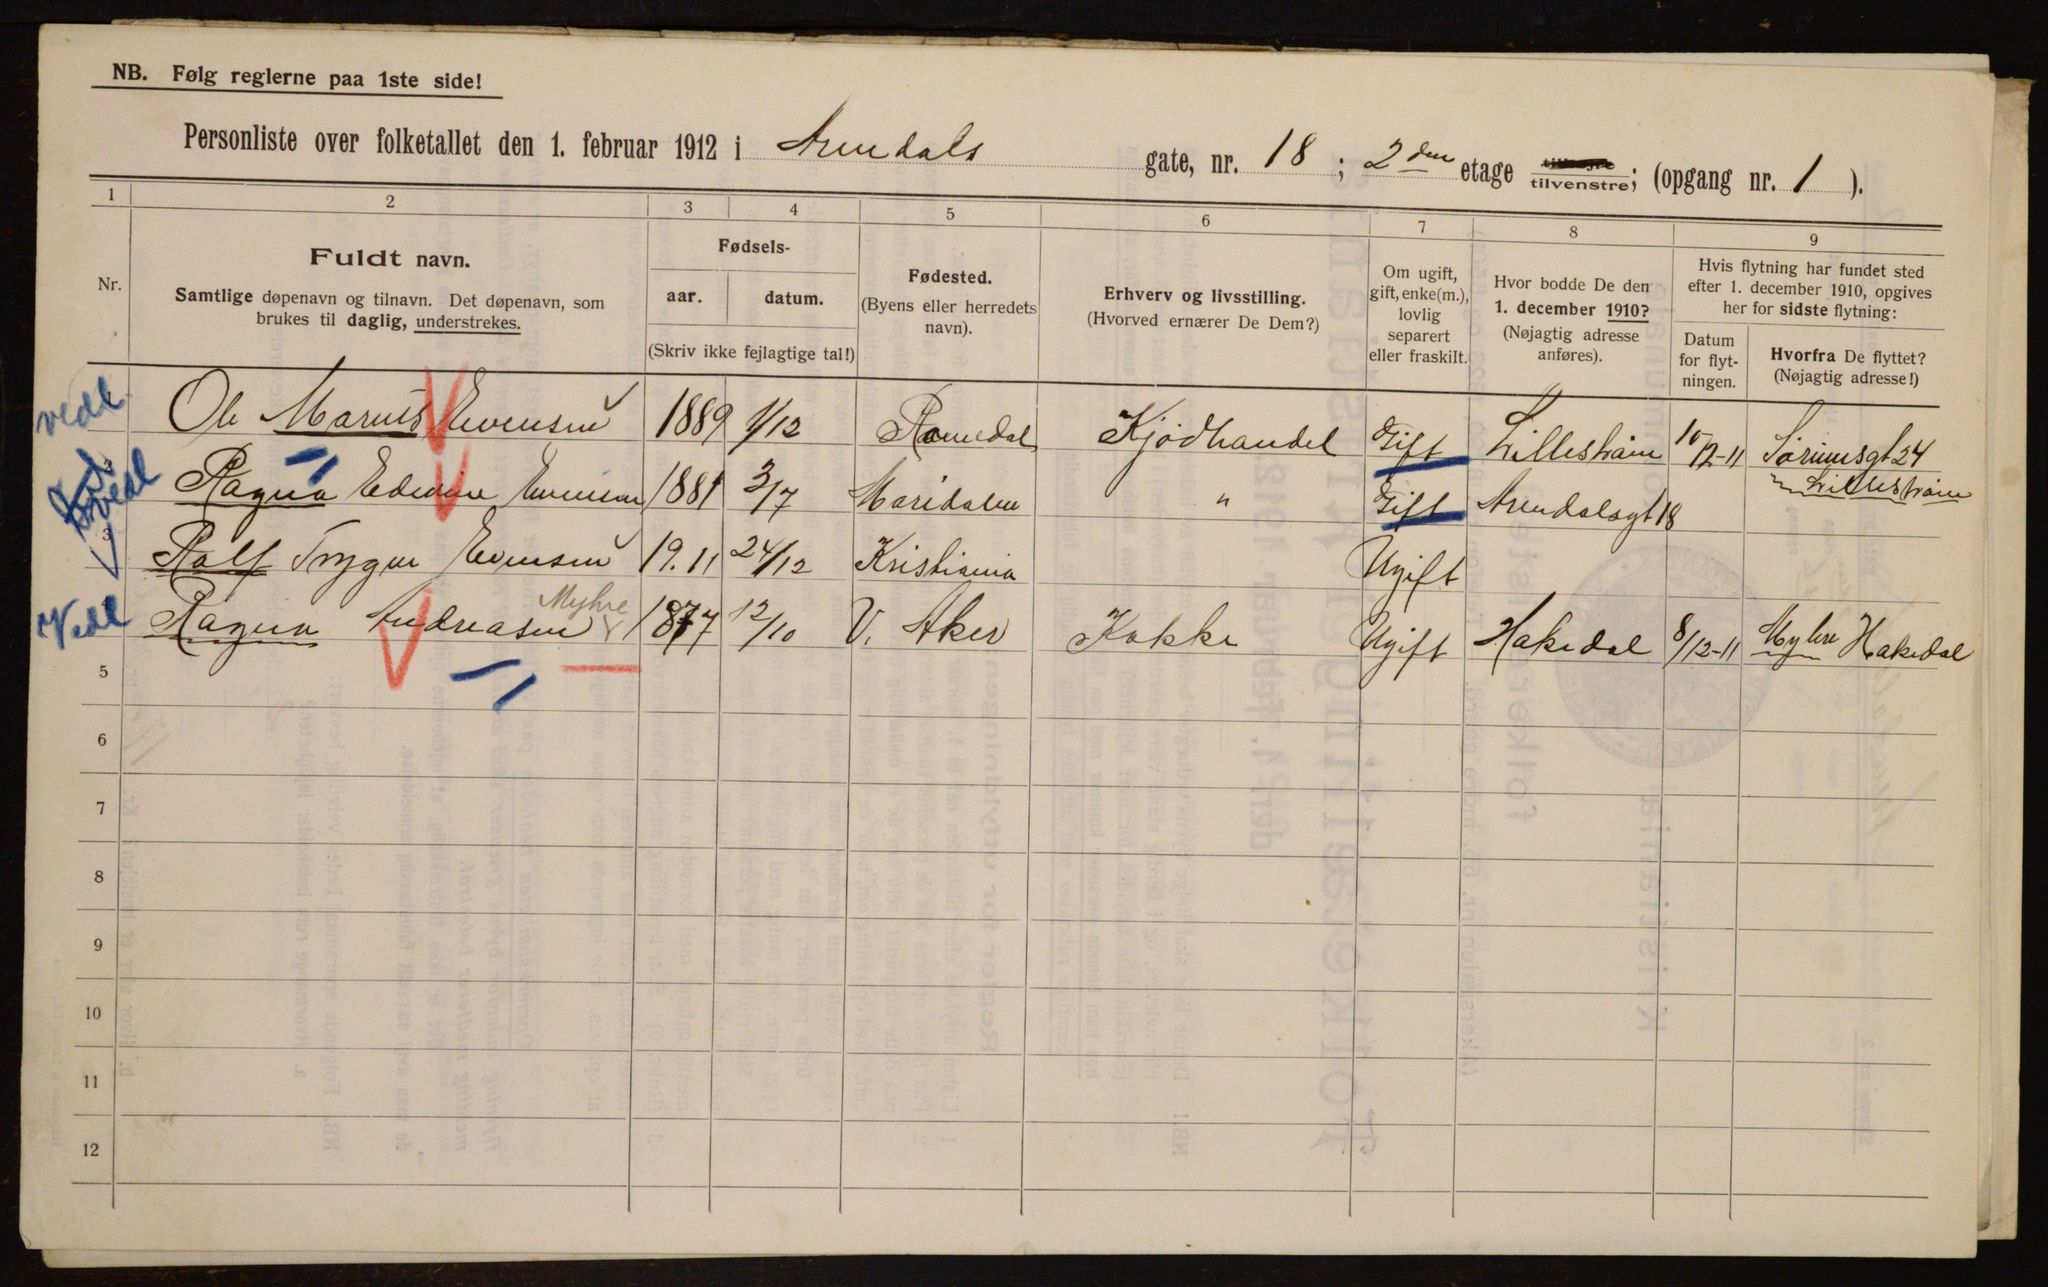 NB. Følg reglerne paa 1ste side!
Personliste over folketallet den 1. februar 1912 i Arendals gate, nr. 18; 2den etage tilvenstre; (opgang nr. 1).
1 2 3 4 5 6 7 8 9
Nr.
Fuldt navn.
Samtlige døpenavn og tilnavn. Det døpenavn, som
brukes til daglig, understrekes.
Fødsels-
aar. datum.
(Skriv ikke fejlagtige tal!)
Fødested.
(Byens eller herredets
navn).
Erhverv og livsstilling.
(Hvorved ernærer De Dem?)
Om ugift,
gift, enke(m.),
lovlig
separert
eller fraskilt.
Hvor bodde De den
1. december 1910?
(Nøjagtig adresse
anføres).
Hvis flytning har fundet sted
efter 1. december 1910, opgives
her for sidste flytning:
Datum
for flyt-
ningen.
Hvorfra De flyttet?
(Nøjagtig adresse!)
vedl. Ole Marius Evensen 1889 1/12 Romedal Kjødhandel Gift Lillestrøm 10/12-11 Sørumsgt 24
Lillestrøm
2 vedl Ragna Edevine Evensen 1881 3/7 Maridalen " Gift Arendalsgt 18
3 Rolf Trygve Evensen 19.11 24/12 Kristiania Ugift
Myhre
Vedl Ragna Andreasen 1877 12/10 V. Aker Kokke Ugift Hakedal 8/12-11 Myhre Hakedal
5
6
7
8
9
10
11
12